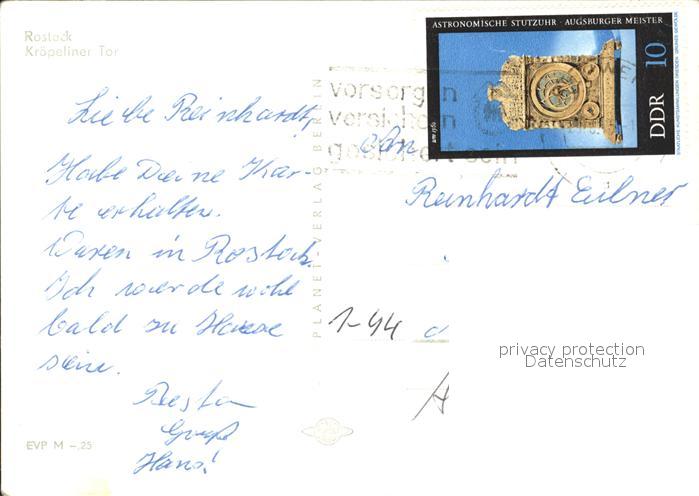 Rostock
Kröpeliner Tor
Liebe Reinhardt,
Habe Deine Kar-
te erhalten.
Waren in Rostock.
Ich werde wohl
bald zu Hause
sein.
Besten
Gruß
Hans!
EVP M –,25
PLANET-VERLAG BERLIN
ASTRONOMISCHE STUTZUHR · AUGSBURGER MEISTER
um 1560
DDR 10
STAATLICHE KUNSTSAMMLUNGEN DRESDEN · GRÜNES GEWÖLBE
vorsorgen
versichern
gesichert sein
An
Reinhardt Eilner
1-44
privacy protection
Datenschutz